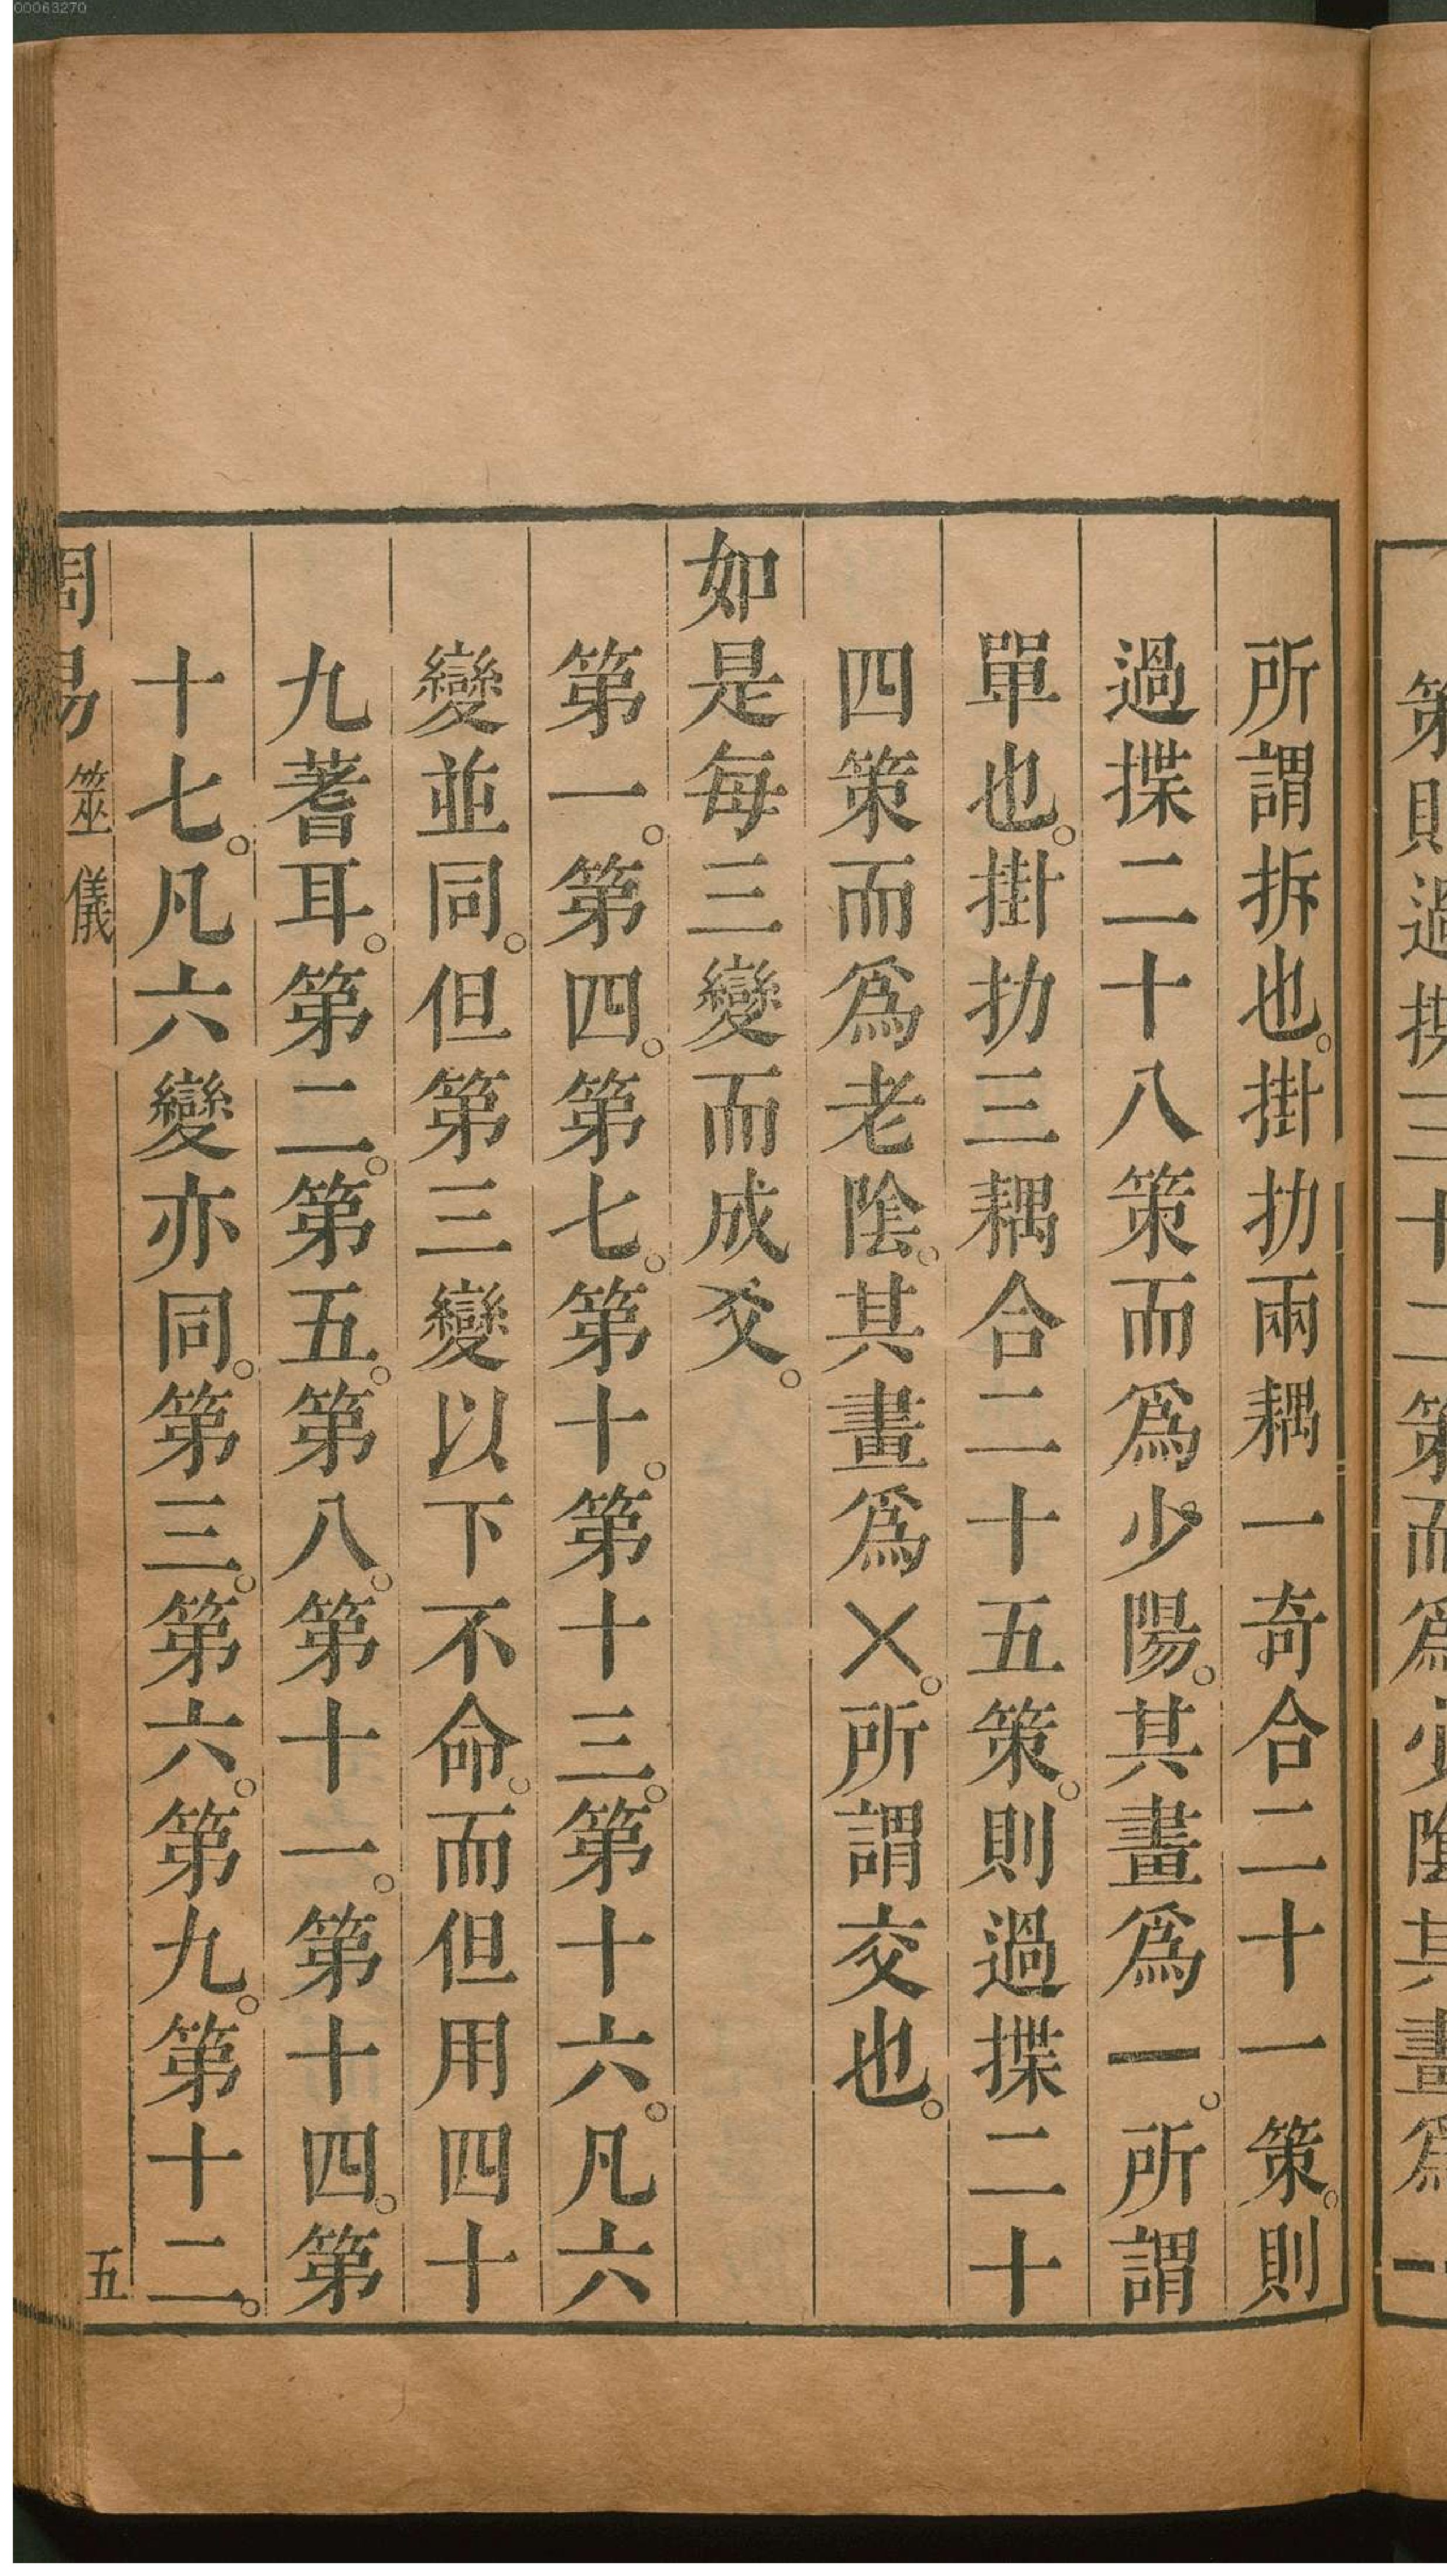 00063270
所謂拆也。掛扐兩耦一奇合二十一策。則
過揲二十八策而爲少陽。其畫爲一。所謂
單也。掛扐三耦合二十五策。則過揲二十
四策而爲老陰。其畫爲乂。所謂交也。
如是每三變而成爻。
第一。第四。第七。第十。第十三。第十六。凡六
變並同。但第三變以下不命。而但用四十
九蓍耳。第二。第五。第八。第十一。第十四。第
十七。凡六變亦同。第三。第六。第九。第十二。
周易 筮儀 五